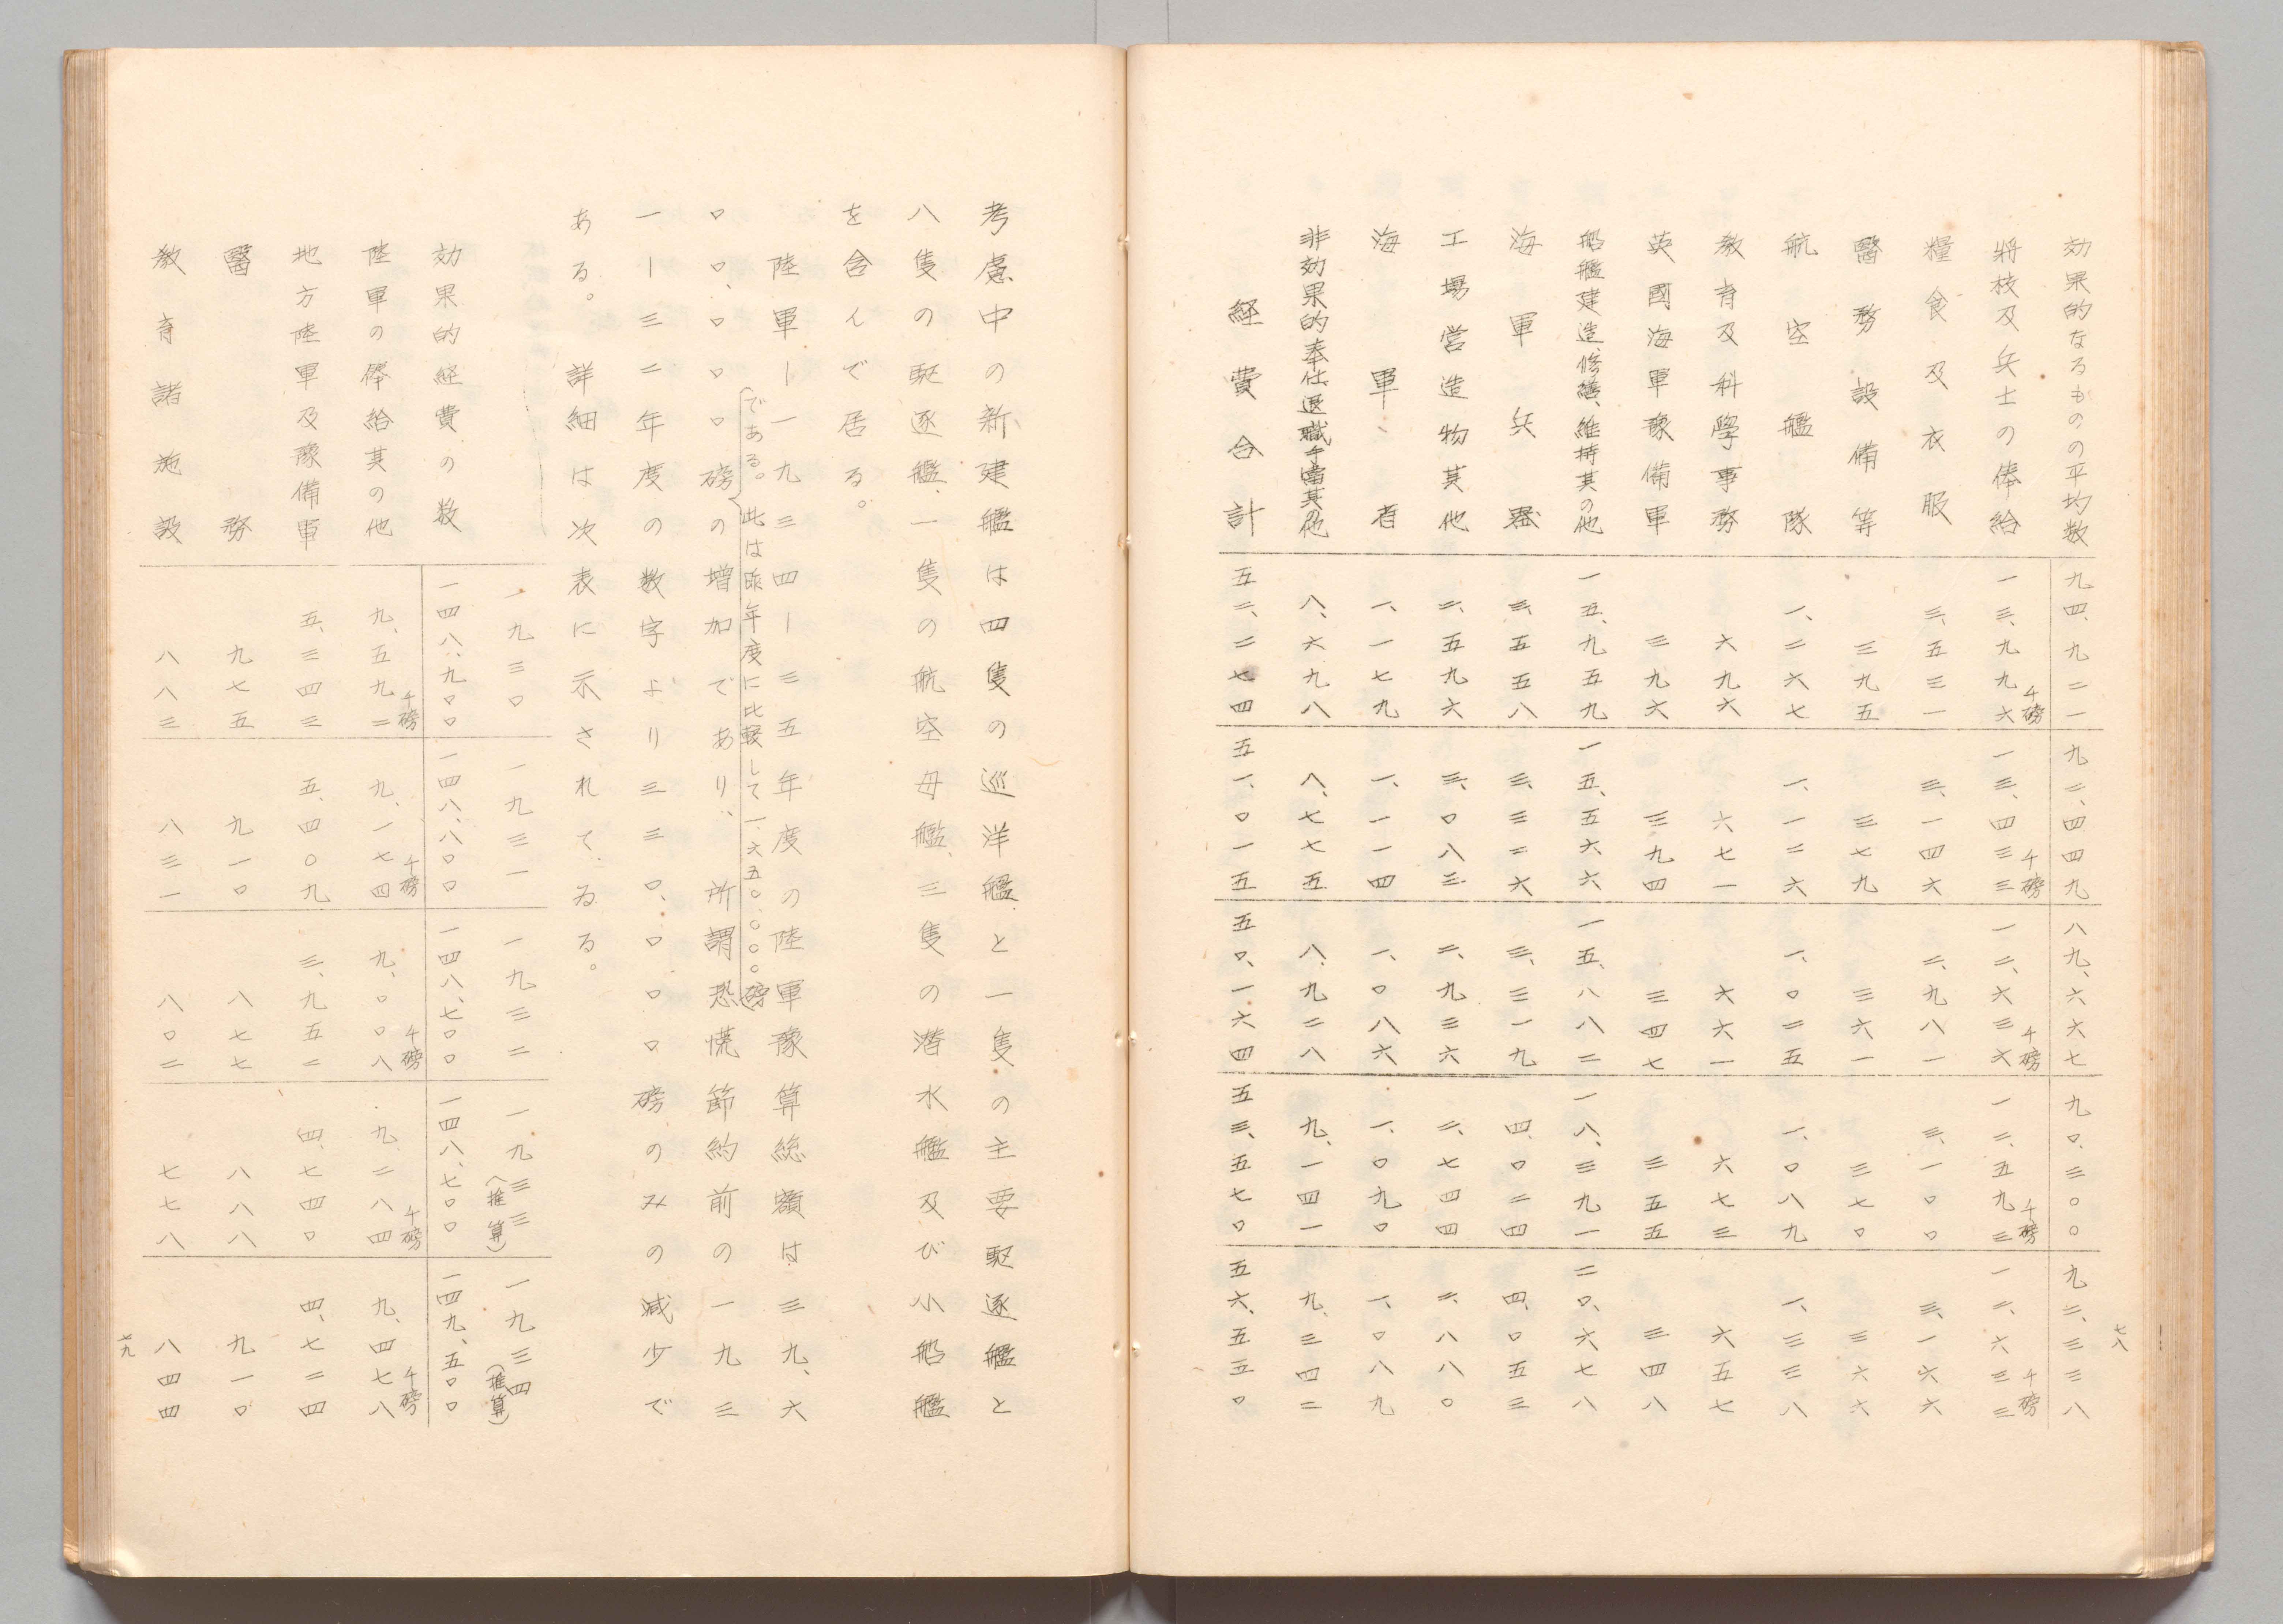 七八
効果的なるものの平均数 九四、九二一 九二、四四九 八九、六六七 九〇、三〇〇 九二、三三八
千磅 千磅 千磅 千磅 千磅
將校及兵士の俸給 一三、九九六 一三、四三三 一二、六三六 一二、五九三 一二、六三三
糧食及衣服 三、五三一 三、一四六 二、九八一 三、一〇〇 三、一六六
醫務設備等 三九五 三七九 三六一 三七〇 三六六
航空艦隊 一、二六七 一、一二六 一、〇二五 一、〇八九 一、三三八
教育及科學事務 六九六 六七一 六六一 六七三 六五七
英國海軍豫備軍 三九六 三九四 三四七 三五五 三四八
船艦建造、修繕、維持其の他 一五、九五九 一五、五六六 一五、八八二 一八、三九一 二〇、六七八
海軍兵器 三、五五八 三、三二六 三、三一九 四、〇二四 四、〇五三
工場営造物其他 二、五九六 三、〇八三 二、九三六 二、七四四 二、八八〇
海軍省 一、一七九 一、一一四 一、〇八六 一、〇九〇 一、〇八九
非効果的奉仕、退職手當其他 八、六九八 八、七七五 八、九二八 九、一四一 九、三四二
経費合計 五二、二七四 五一、〇一五 五〇、一六四 五三、五七〇 五六、五五〇
考慮中の新建艦は四隻の巡洋艦と一隻の主要駆逐艦と
八隻の駆逐艦、一隻の航空母艦、三隻の潜水艦及び小船艦
を含んで居る。
陸軍―一九三四―三五年度の陸軍豫算総額は三九、六
（である。此は昨年度に比較して一、六五〇、〇〇〇磅）
〇〇、〇〇〇磅の増加であり、所謂恐慌節約前の一九三
一―三二年度の数字より三三〇、〇〇〇磅のみの減少で
ある。詳細は次表に示されてゐる。
一九三〇 一九三一 一九三二 一九三三（推算） 一九三四（推算）
効果的経費の数 一四八、九〇〇 一四八、八〇〇 一四八、七〇〇 一四八、七〇〇 一四九、五〇〇
千磅 千磅 千磅 千磅 千磅
陸軍の俸給其の他 九、五九二 九、一七四 九、〇〇八 九、二八四 九、四七八
地方陸軍及豫備軍 五、三四三 五、四〇九 三、九五二 四、七四〇 四、七二四
醫務 九七五 九一〇 八七七 八八八 九一〇
教育諸施設 八八三 八三一 八〇二 七七八 八四四
七九